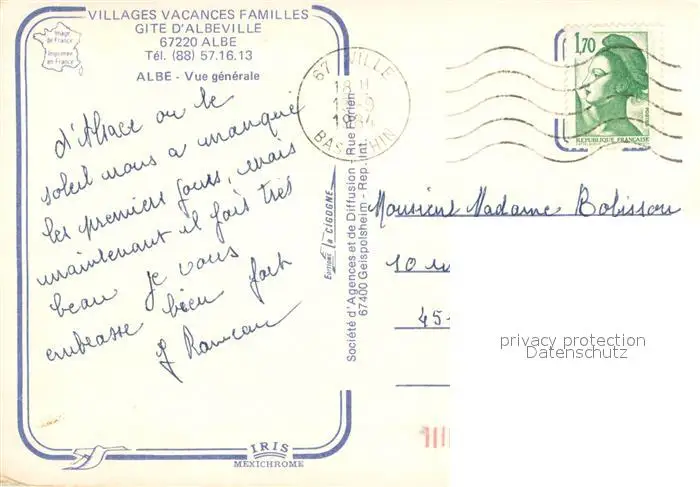 VILLAGES VACANCES FAMILLES
GITE D'ALBEVILLE
67220 ALBE
Tél. (88) 57.16.13
ALBE - Vue générale
Image de France
Imprimée en France
d'Alsace ou le
soleil nous a manqué
les premiers jours, mais
maintenant il fait très
beau je vous
embrasse bien fort
IRIS
MEXICHROME
67 VILLE
18 H
1984
BAS-RHIN
EDITIONS la CIGOGNE
Société d'Agences et de Diffusion 1 Rue
67400 Geispolsheim - Rep. Int.
1,70
REPUBLIQUE FRANCAISE
Monsieur Madame Bobisson
10
45
privacy protection
Datenschutz